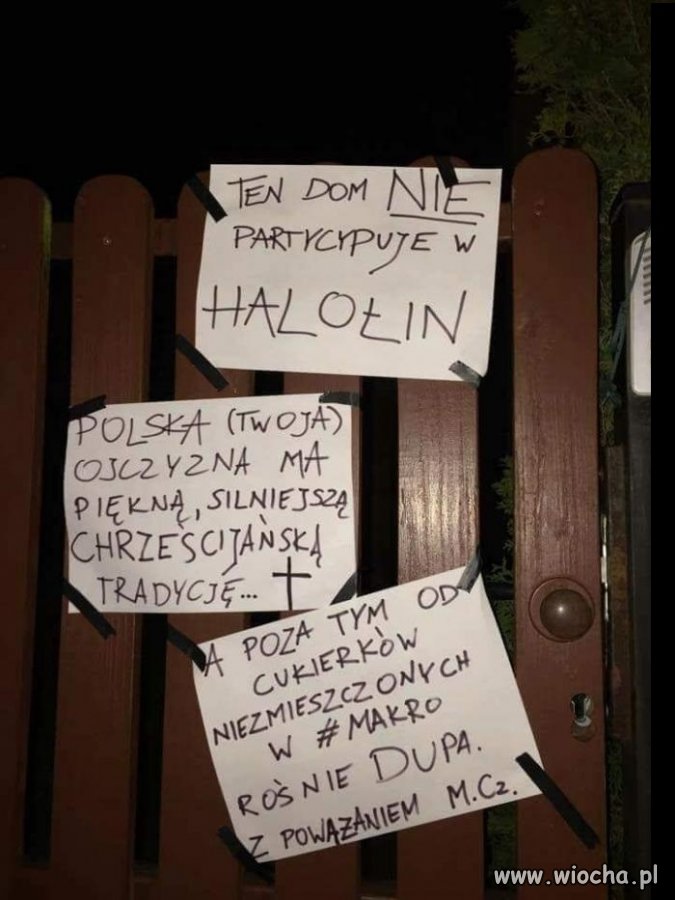 TEN DOM NIE
PARTYCYPUJE W
HALOŁIN
POLSKA (TWOJA)
OJCZYZNA MA
PIĘKNĄ, SILNIEJSZĄ
CHRZEŚCIJAŃSKĄ
TRADYCJĘ...
A POZA TYM OD
CUKIERKÓW
NIEZMIESZCZONYCH
W #MAKRO
ROŚNIE DUPA.
Z POWĄŻANIEM M.Cz.
www.wiocha.pl